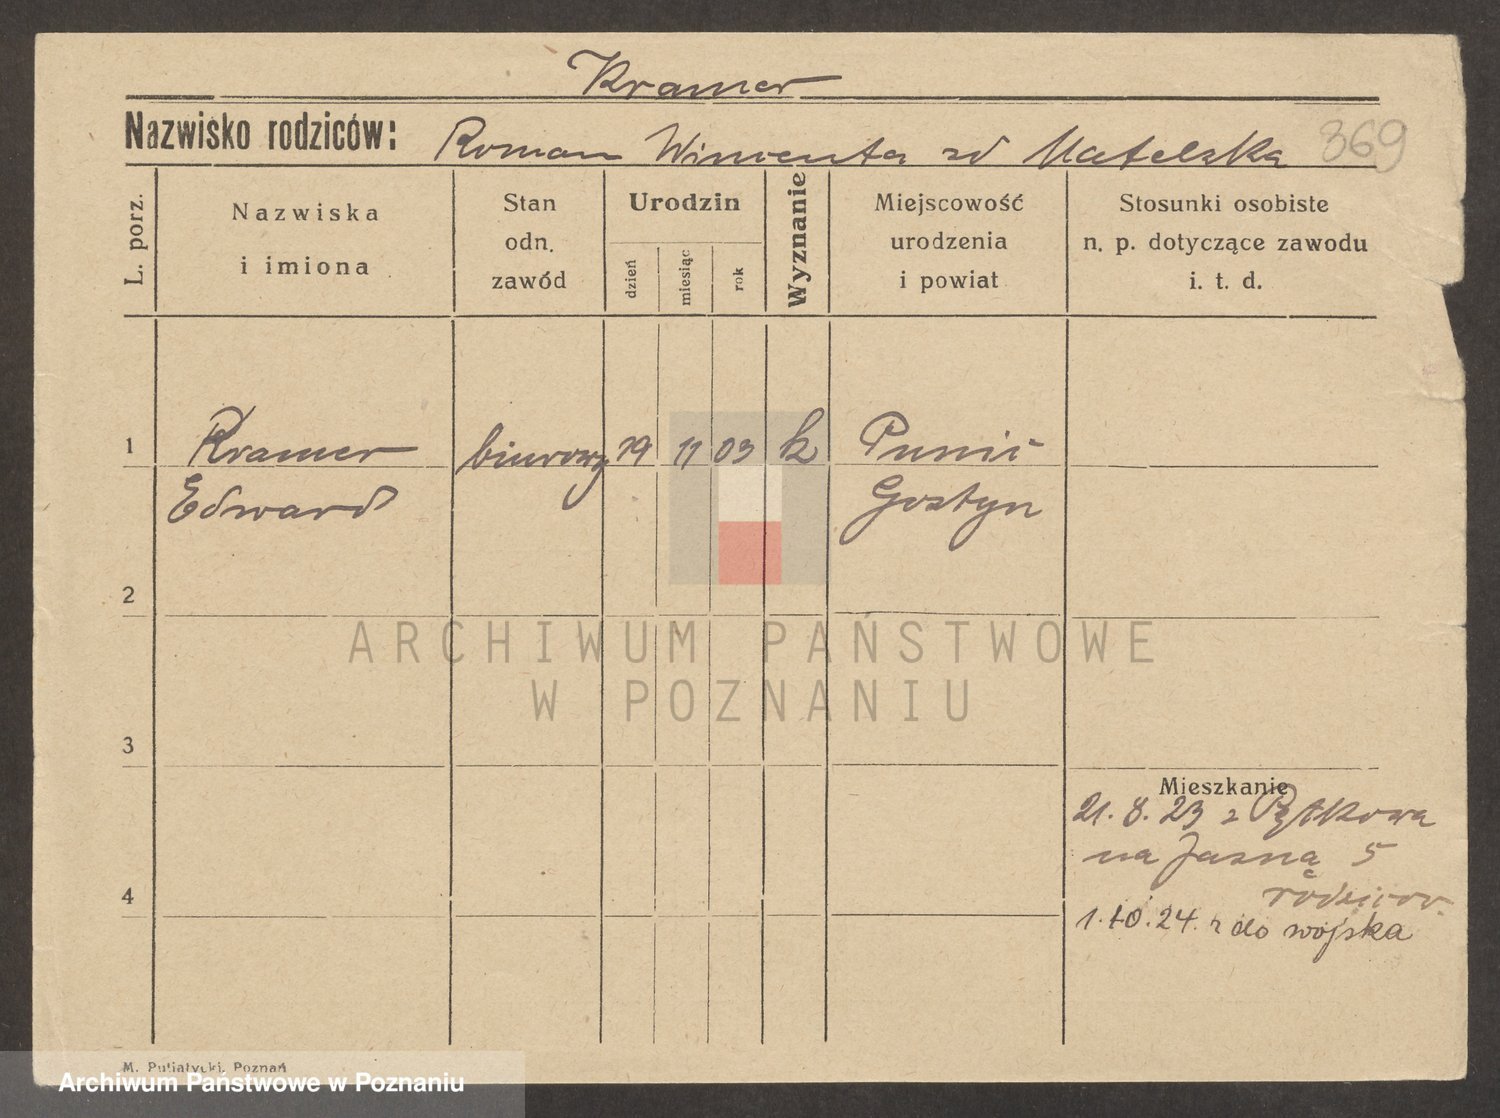 Kramer
Nazwisko rodziców: Roman Wincenta zd Matelska 369
L. porz.
Nazwiska
i imiona
Stan
odn.
zawód
Urodzin
dzień
miesiąc
rok
Wyznanie
Miejscowość
urodzenia
i powiat
Stosunki osobiste
n. p. dotyczące zawodu
i. t. d.
1 Kramer biurowy 19 11 03 k Punic
Edward Gostyn
2
ARCHIWUM PAŃSTWOWE
W POZNANIU
3
Mieszkanie
21. 8. 23 z
na Jasną 5
rodziców.
4
1. 10. 24. r do wojska
M. Putiatycki, Poznań
Archiwum Państwowe w Poznaniu